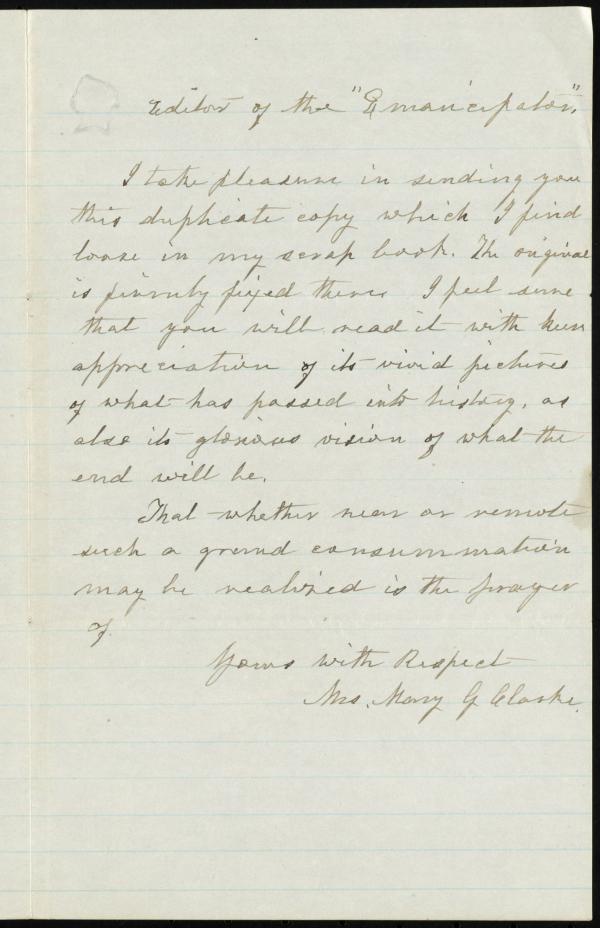 Editor of the "Emancipator".
I take pleasure in sending you
this duplicate copy which I find
loose in my scrap book. The original
is firmly fixed there. I feel sure
that you will read it with keen
appreciation of its vivid pictures
of what has passed into history, as
also its glorious vision of what the
end will be.
That whether near or remote
such a grand consummation
may be realized is the prayer
of
Yours with Respect
Mrs. Mary G Clarke.